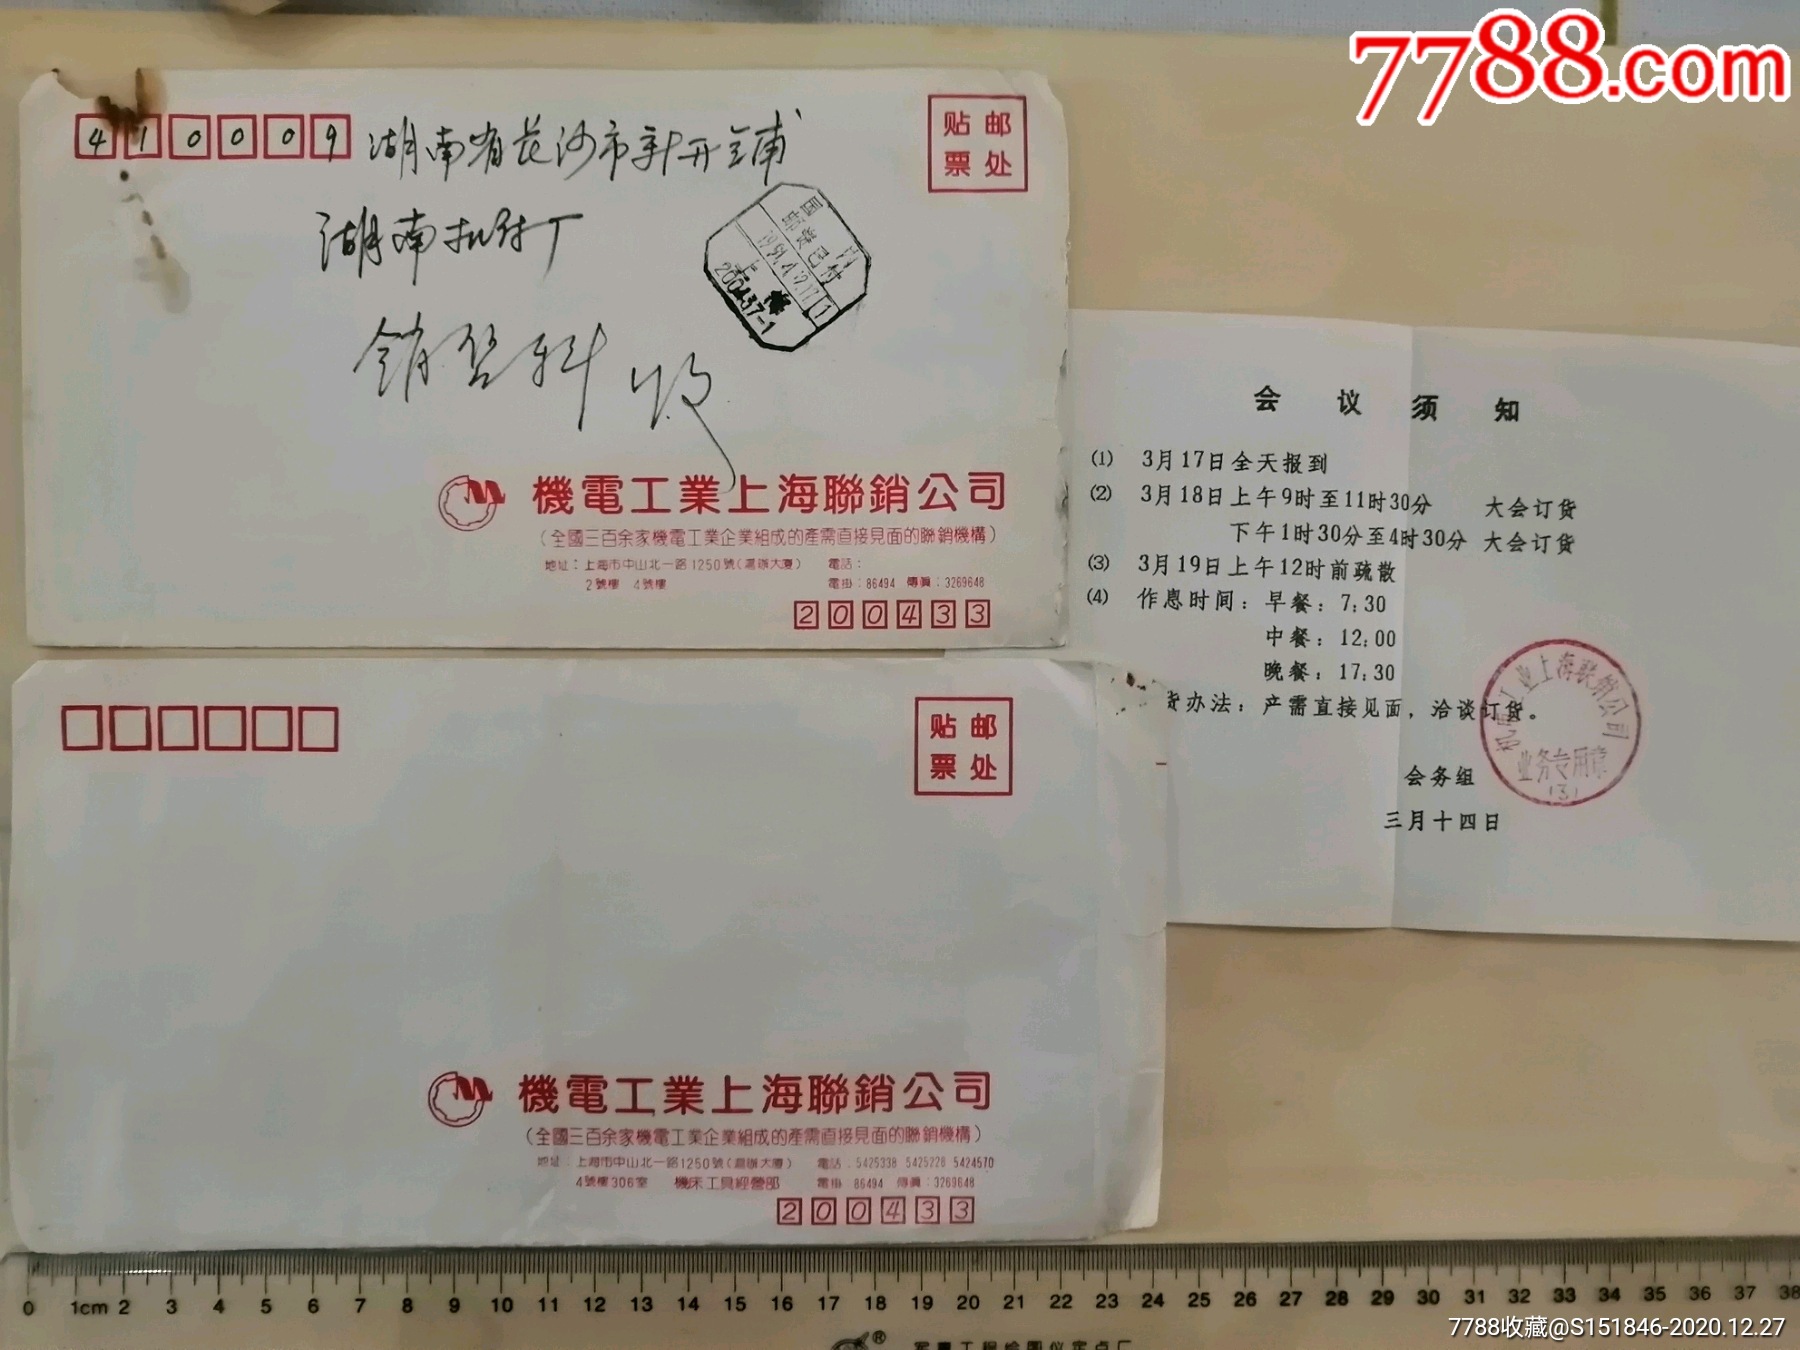 7788.com
410009
湖南省长沙市新开铺
贴邮
票处
湖南机床厂
销售科 收
国内
邮资已付
上海
200437-1
機電工業上海聯銷公司
(全國三百余家機電工業企業組成的產需直接見面的聯銷機構)
地址：上海市中山北一路1250號(滬辦大廈) 電話：
2號樓 4號樓 電掛：86494 傳眞：3269648
200433
会议须知
(1) 3月17日全天报到
(2) 3月18日上午9时至11时30分 大会订货
下午1时30分至4时30分 大会订货
(3) 3月19日上午12时前疏散
(4) 作息时间：早餐：7:30
中餐：12:00
晚餐：17:30
货办法：产需直接见面，洽谈订货。
机电工业上海联销公司
业务专用章
(3)
会务组
三月十四日
贴邮
票处
機電工業上海聯銷公司
(全國三百余家機電工業企業組成的產需直接見面的聯銷機構)
地址：上海市中山北一路1250號(滬辦大廈) 電話：5425338 5425228 5424570
4號樓306室 機床工具經營部 電掛：86494 傳眞：3269648
200433
0 1cm 2 3 4 5 6 7 8 9 10 11 12 13 14 15 16 17 18 19 20 21 22 23 24 25 26 27 28 29 30 31 32 33 34 35 36 37 38
7788收藏@S151846-2020.12.27